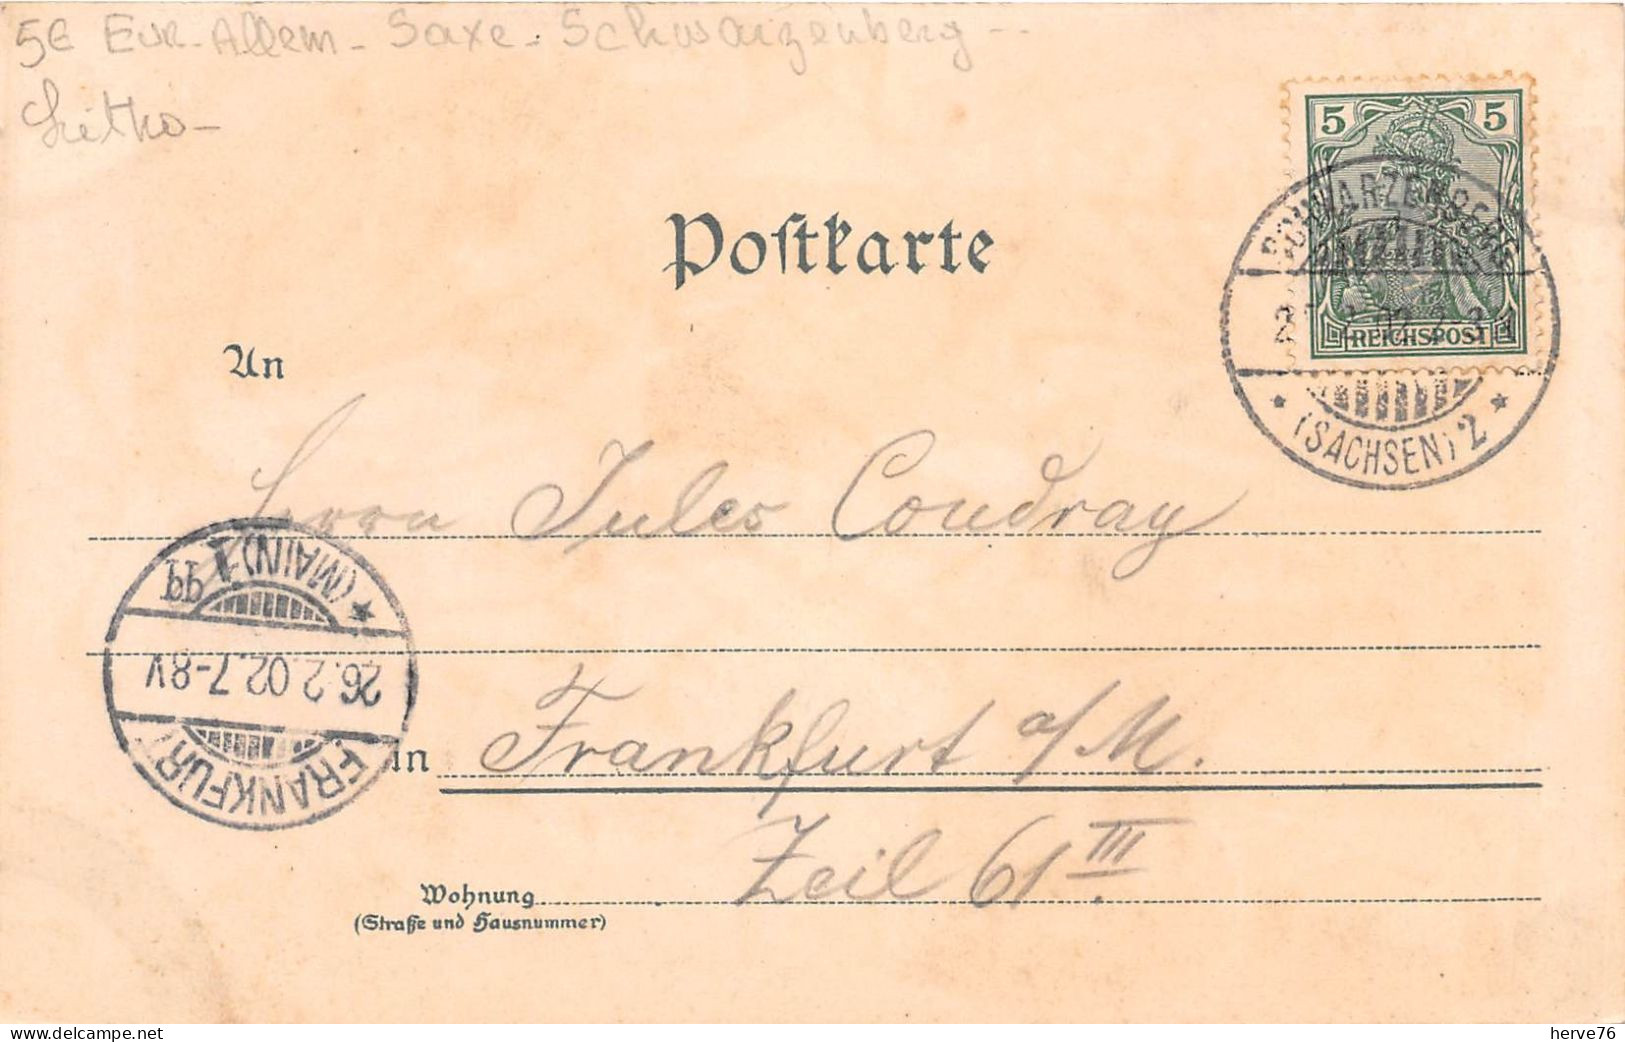 5€ Eur-Allem- Saxe- Schwarzenberg--
Litho-
5 5
REICHSPOST
SCHWARZENBERG
(SACHSEN) 2
Postkarte
An
Herrn Jules Coudray
(MAIN) 1
26.2.02.7-8V
FRANKFURT
in Frankfurt a/M.
Zeil 61 III
Wohnung
(Straße und Hausnummer)
herve76